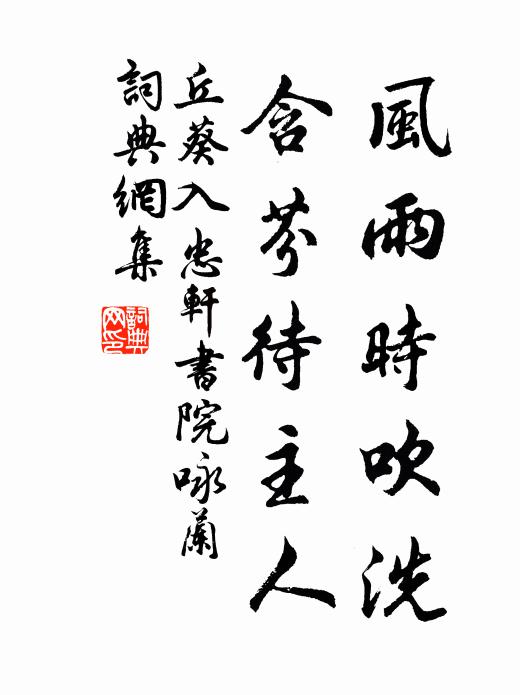 風雨時吹洗
含芬待主人
丘葵入忠軒書院咏蘭
詞典網集
詞典网印